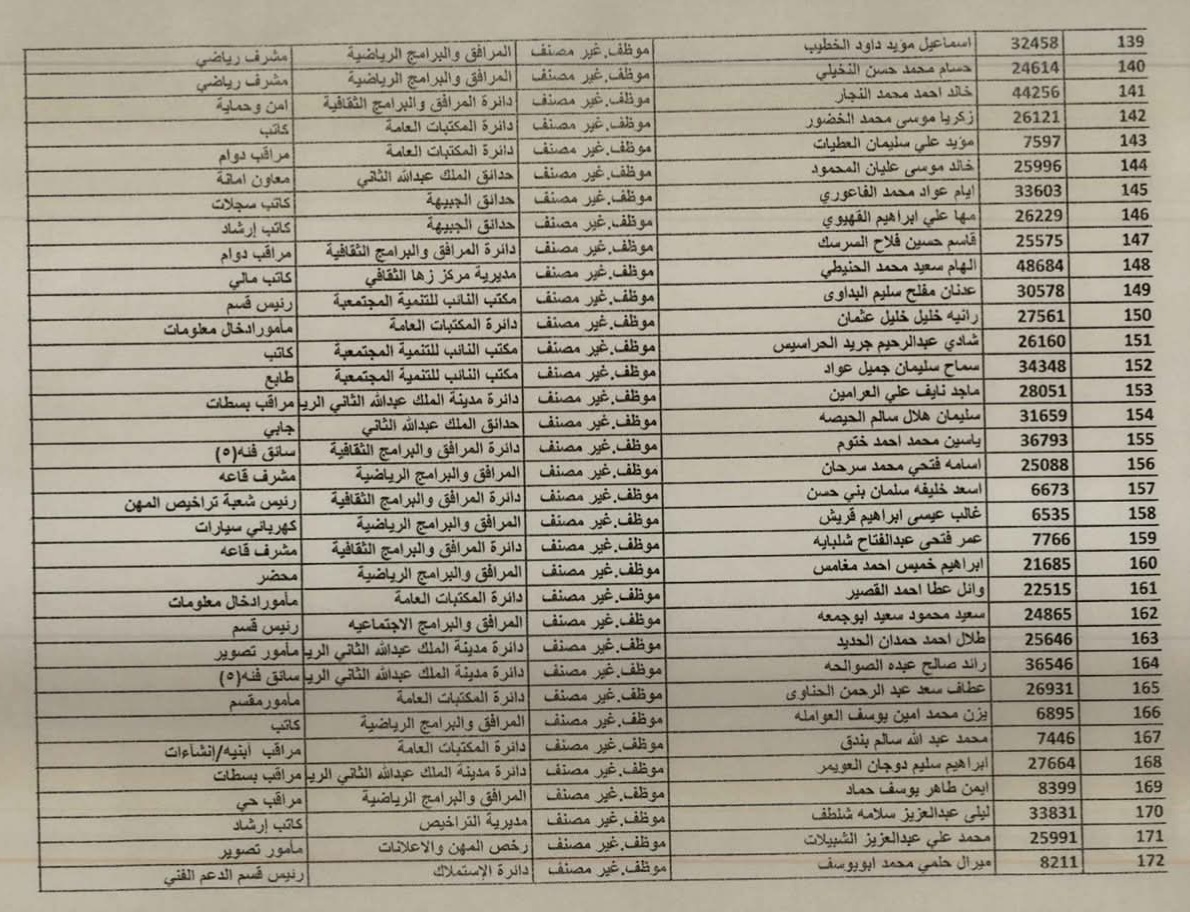 139 32458 اسماعيل مؤيد داود الخطيب موظف.غير مصنف المرافق والبرامج الرياضية مشرف رياضي
140 24614 حسام محمد حسن النخيلي موظف.غير مصنف المرافق والبرامج الرياضية مشرف رياضي
141 44256 خالد احمد محمد النجار موظف.غير مصنف دائرة المرافق والبرامج الثقافية امن وحماية
142 26121 زكريا موسى محمد الخضور موظف.غير مصنف دائرة المكتبات العامة كاتب
143 7597 مؤيد علي سليمان العطيات موظف.غير مصنف دائرة المكتبات العامة مراقب دوام
144 25996 خالد موسى عليان المحمود موظف.غير مصنف حدائق الملك عبدالله الثاني معاون امانة
145 33603 ايام عواد محمد الفاعوري موظف.غير مصنف حدائق الجبيهة كاتب سجلات
146 26229 مها علي ابراهيم القهيوي موظف.غير مصنف حدائق الجبيهة كاتب إرشاد
147 25575 قاسم حسين فلاح السرسك موظف.غير مصنف دائرة المرافق والبرامج الثقافية مراقب دوام
148 48684 الهام سعيد محمد الحنيطي موظف.غير مصنف مديرية مركز زها الثقافي كاتب مالي
149 30578 عدنان مفلح سليم البداوى موظف.غير مصنف مكتب النائب للتنمية المجتمعية رئيس قسم
150 27561 رانيه خليل خليل عثمان موظف.غير مصنف دائرة المكتبات العامة مأمورادخال معلومات
151 26160 شادي عبدالرحيم جريد الحراسيس موظف.غير مصنف مكتب النائب للتنمية المجتمعية كاتب
152 34348 سماح سليمان جميل عواد موظف.غير مصنف مكتب النائب للتنمية المجتمعية طابع
153 28051 ماجد نايف علي العرامين موظف.غير مصنف دائرة مدينة الملك عبدالله الثاني الريا مراقب بسطات
154 31659 سليمان هلال سالم الحيصه موظف.غير مصنف حدائق الملك عبدالله الثاني جابي
155 36793 ياسين محمد احمد ختوم موظف.غير مصنف دائرة المرافق والبرامج الثقافية سائق فئه(٥)
156 25088 اسامه فتحي محمد سرحان موظف.غير مصنف المرافق والبرامج الرياضية مشرف قاعه
157 6673 اسعد خليفه سلمان بني حسن موظف.غير مصنف دائرة المرافق والبرامج الثقافية رئيس شعبة تراخيص المهن
158 6535 غالب عيسى ابراهيم قريش موظف.غير مصنف المرافق والبرامج الرياضية كهربائي سيارات
159 7766 عمر فتحى عبدالفتاح شلبايه موظف.غير مصنف دائرة المرافق والبرامج الثقافية مشرف قاعه
160 21685 ابراهيم خميس احمد مغامس موظف.غير مصنف المرافق والبرامج الرياضية محضر
161 22515 وائل عطا احمد القصير موظف.غير مصنف دائرة المكتبات العامة مأمورادخال معلومات
162 24865 سعيد محمود سعيد ابوجمعه موظف.غير مصنف المرافق والبرامج الاجتماعيه رئيس قسم
163 25646 طلال احمد حمدان الحديد موظف.غير مصنف دائرة مدينة الملك عبدالله الثاني الريا مأمور تصوير
164 36546 رائد صالح عبده الصوالحه موظف.غير مصنف دائرة مدينة الملك عبدالله الثاني الريا سائق فئه(٥)
165 26931 عطاف سعد عبد الرحمن الحناوى موظف.غير مصنف دائرة المكتبات العامة مأمورمقسم
166 6895 يزن محمد امين يوسف العوامله موظف.غير مصنف المرافق والبرامج الرياضية كاتب
167 7446 محمد عبد الله سالم بندق موظف.غير مصنف دائرة المكتبات العامة مراقب أبنيه/إنشاءات
168 27664 ابراهيم سليم دوجان العويمر موظف.غير مصنف دائرة مدينة الملك عبدالله الثاني الريا مراقب بسطات
169 8399 ايمن طاهر يوسف حماد موظف.غير مصنف المرافق والبرامج الرياضية مراقب حي
170 33831 ليلى عبدالعزيز سلامه شلطف موظف.غير مصنف مديرية التراخيص كاتب إرشاد
171 25991 محمد علي عبدالعزيز الشبيلات موظف.غير مصنف رخص المهن والاعلانات مأمور تصوير
172 8211 ميرال حلمي محمد ابويوسف موظف.غير مصنف دائرة الإستملاك رئيس قسم الدعم الفني